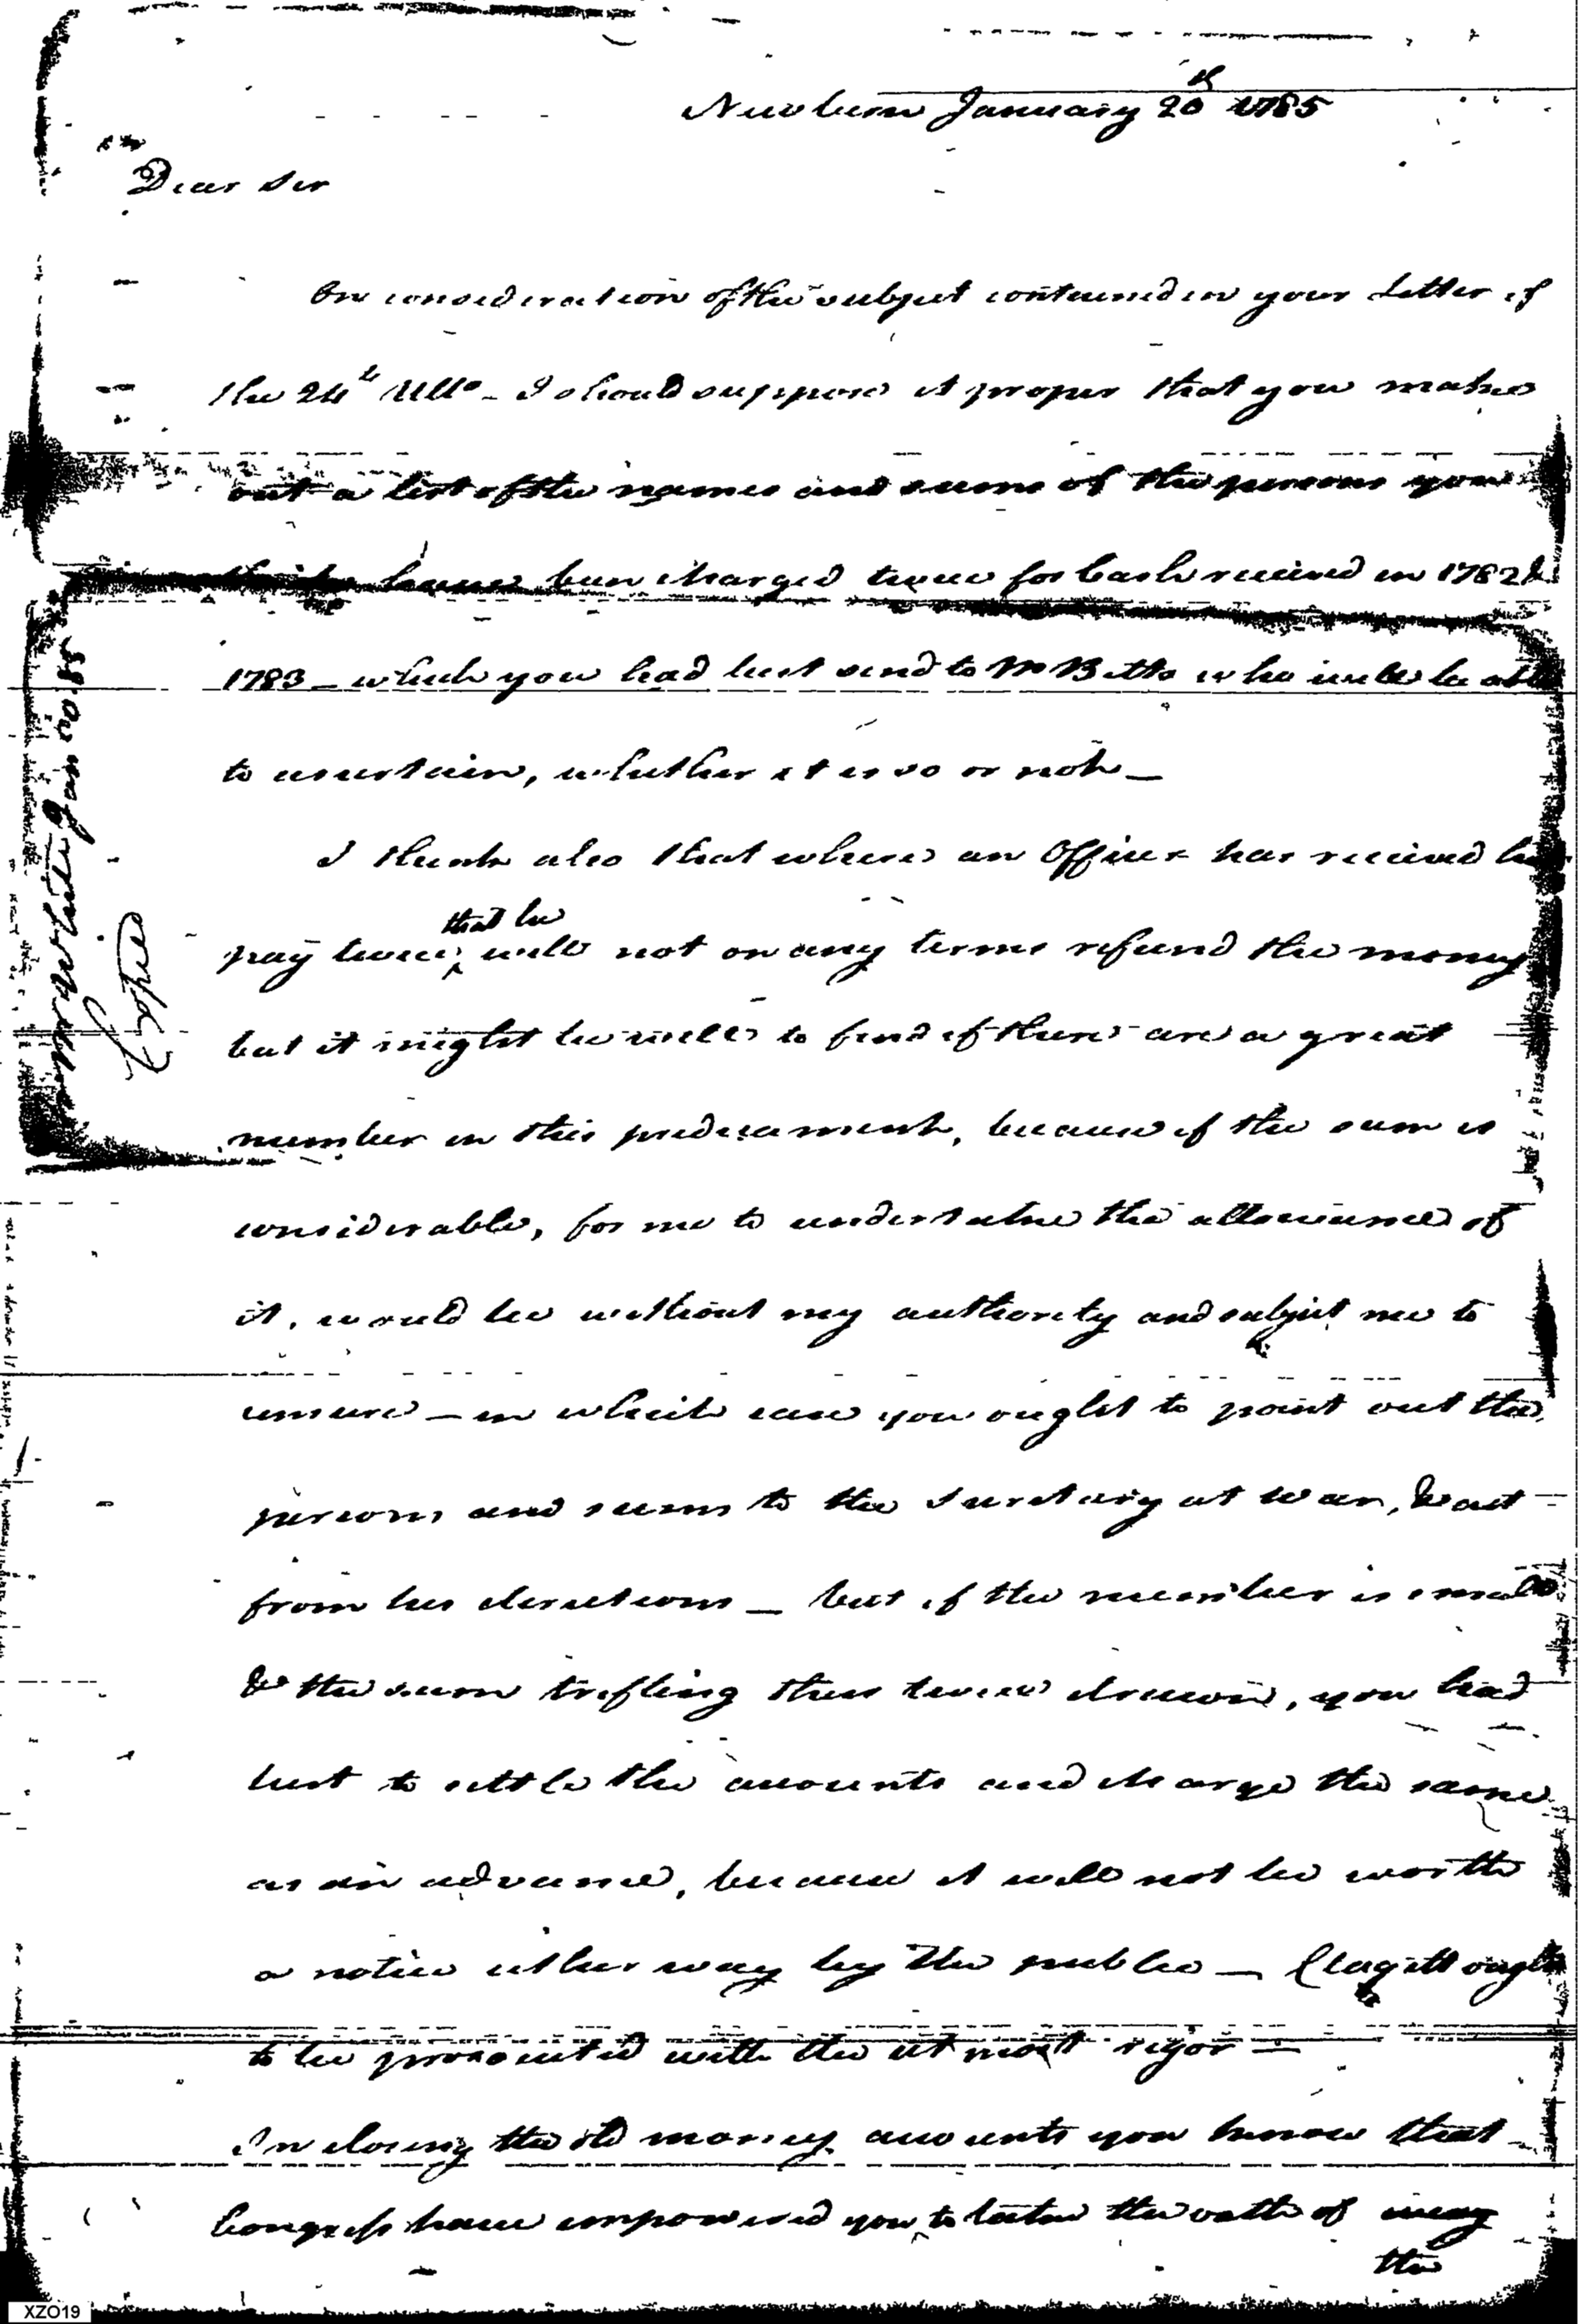 Newbern January 20th 1785
Dear Sir
On consideration of the subject contained in your Letter of
the 24th Ullo - I should suppose it proper that you make
out a list of the names and sums of the persons you
think have been charged twice for Cash received in 1782 &
1783 - which you had best send to Mr Betts who will be able
to ascertain, whether it is so or not -
I think also that where an Officer has received his
pay twice, that he will not on any terms refund the money
but it might be well to find if there are a great
number in this predicament, because if the sum is
considerable, for me to undertake the allowance of
it, would be without my authority and subject me to
censure - in which case you ought to point out the
persons and sums to the Secretary at War, & act
from his directions - but if the number is small
& the sum trifling thus twice drawn, you had
best to settle the accounts and charge the same
as an advance, because it will not be worth
a notice either way by the public - Clagett ought
to be prosecuted with the utmost rigor =
In closing the old money accounts you know that
Congress have empowered you to take the oath of
the
Jan 20. 85
Copied
XZO19